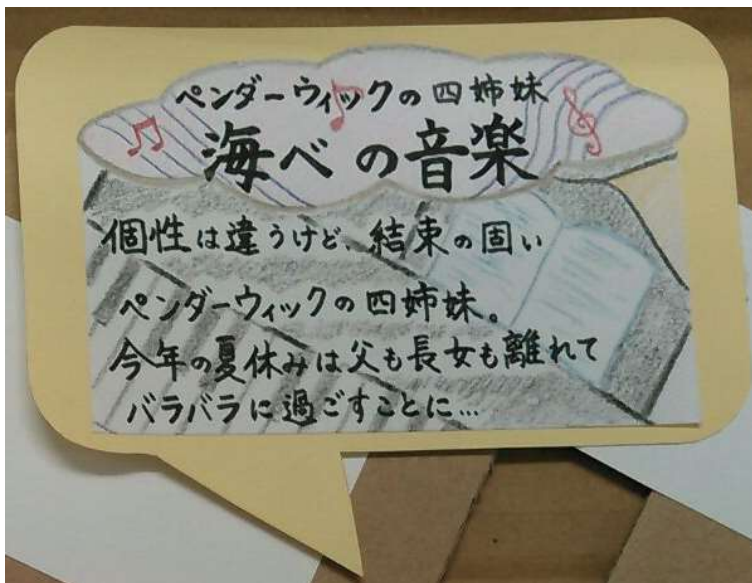 ペンダーウィックの四姉妹
海べの音楽
個性は違うけど、結束の固い
ペンダーウィックの四姉妹。
今年の夏休みは父も長女も離れて
バラバラに過ごすことに…